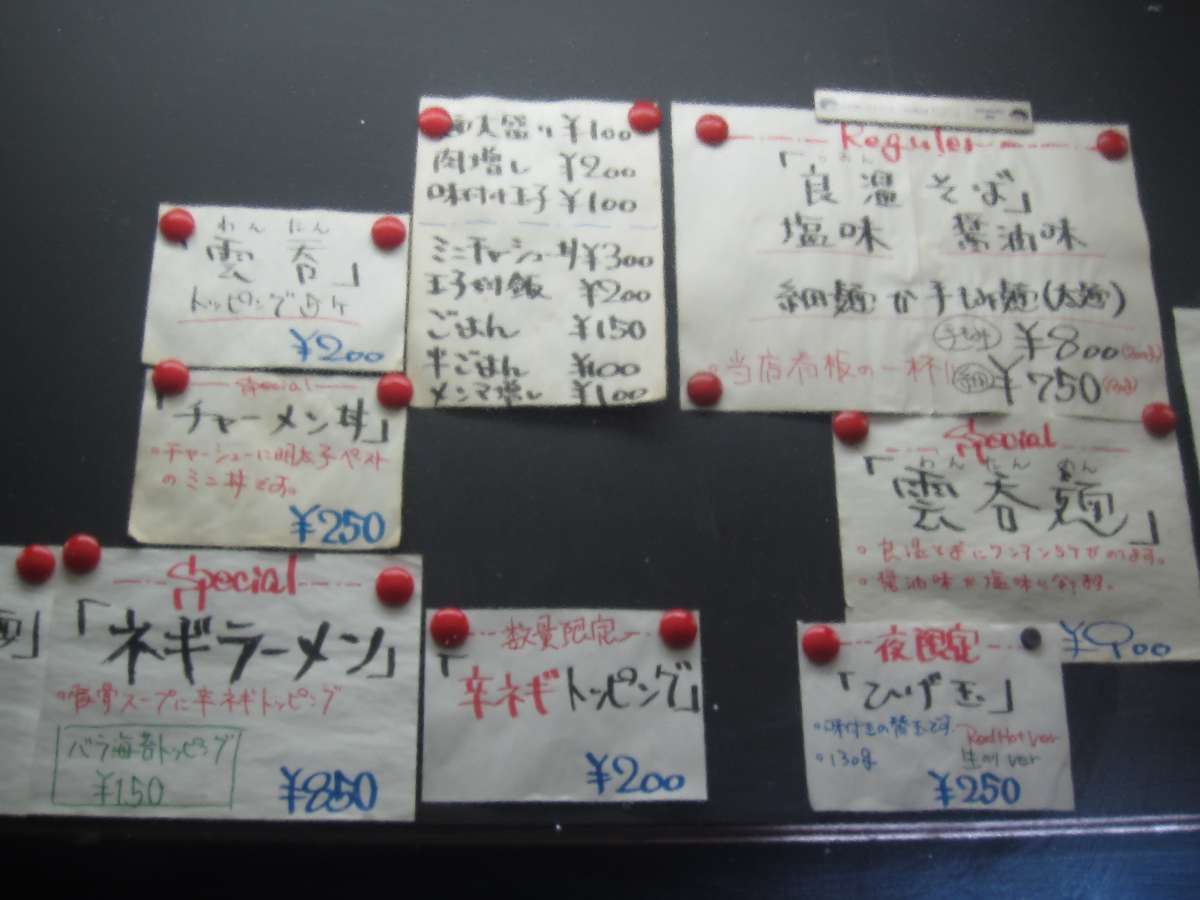 わんたん
「雲呑」
トッピング5ケ
¥200
Special
「チャーメン丼」
・チャーシューに明太子ペースト
のミニ丼です。
¥250
大盛り ¥100
肉増し ¥200
味付け玉子 ¥100
ミニチャーシュー丼 ¥300
¥200
ごはん ¥150
半ごはん ¥100
メンマ増し ¥100
Reguler
「良温そば」
塩味 醤油味
細麺か手もみ麺(太麺)
手もみ ¥800
・当店看板の一杯!!
細 ¥750
Special
わんたんめん
「雲呑麺」
・良温そばにワンタン5ケがのります。
・醤油味か塩味になります。
¥900
Special
「ネギラーメン」
・豚骨スープに辛ネギトッピング
バラ海苔トッピング
¥150
¥850
数量限定
「辛ネギトッピング」
¥200
夜限定
「ひげ玉」
・味付きの替玉です。
・130g
Red Hot ver
ver
¥250